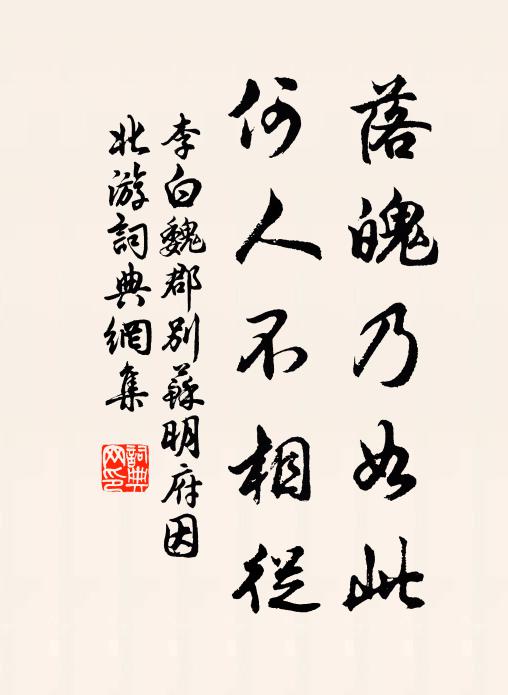 落魄乃如此
何人不相從
李白魏郡別蘇明府因
北游詞典網集
詞典
网印